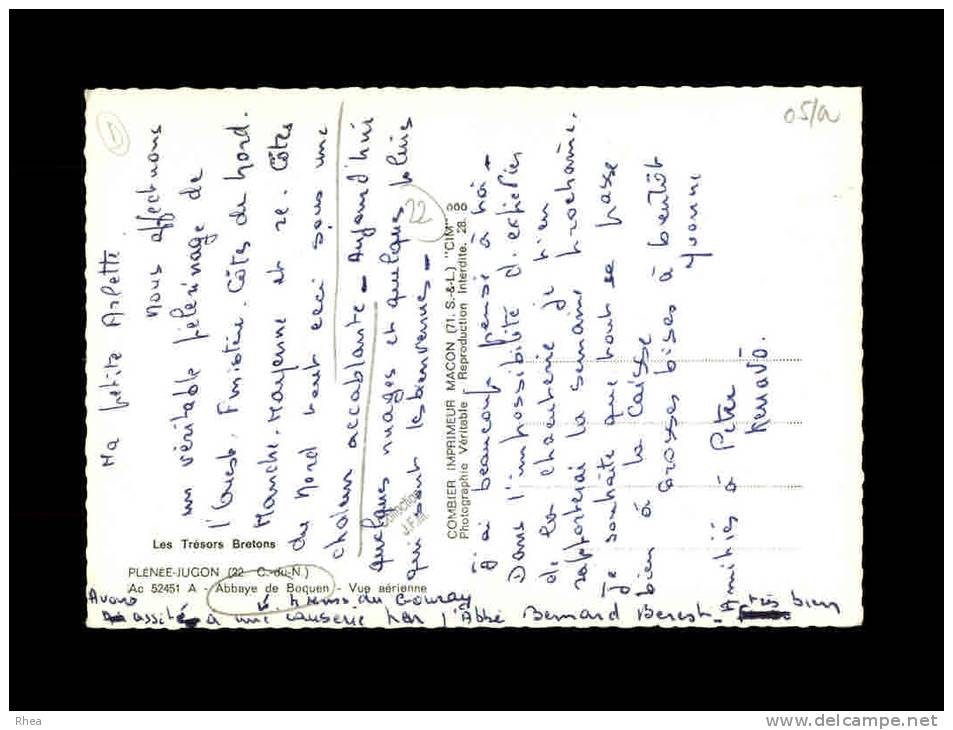 Ma petite Arlette
Nous effectuons
un véritable pélerinage de
l'Ouest. Finistère. Côtes du Nord.
Manche. Mayenne et re. Côtes
du Nord tout ceci sous une
chaleur accablante - Aujourd'hui
quelques nuages et quelques pluies
qui sont les bienvenues -
J'ai beaucoup pensé à toi -
Dans l'impossibilité d'expédier
de la charcuterie je t'en
rapporterai la semaine prochaine.
Je souhaite que tout se passe
bien à la Caisse
Grosses bises à bientôt
Yvonne
Amitiés à Peter
Kenavo.
COMBIER IMPRIMEUR MACON (71. S.-&-L.) "CIM"
Photographie Véritable - Reproduction Interdite. 28. 8
Les Trésors Bretons
PLÉNÉE-JUGON (22 - C.-du-N.)
Ac 52451 A - Abbaye de Boquen - Vue aérienne
du Gouray
Avons assisté à une causerie par l'Abbé Bernard Besret - très bien
Collection
J.F.M.
22
05/a
Rhea
www.delcampe.net